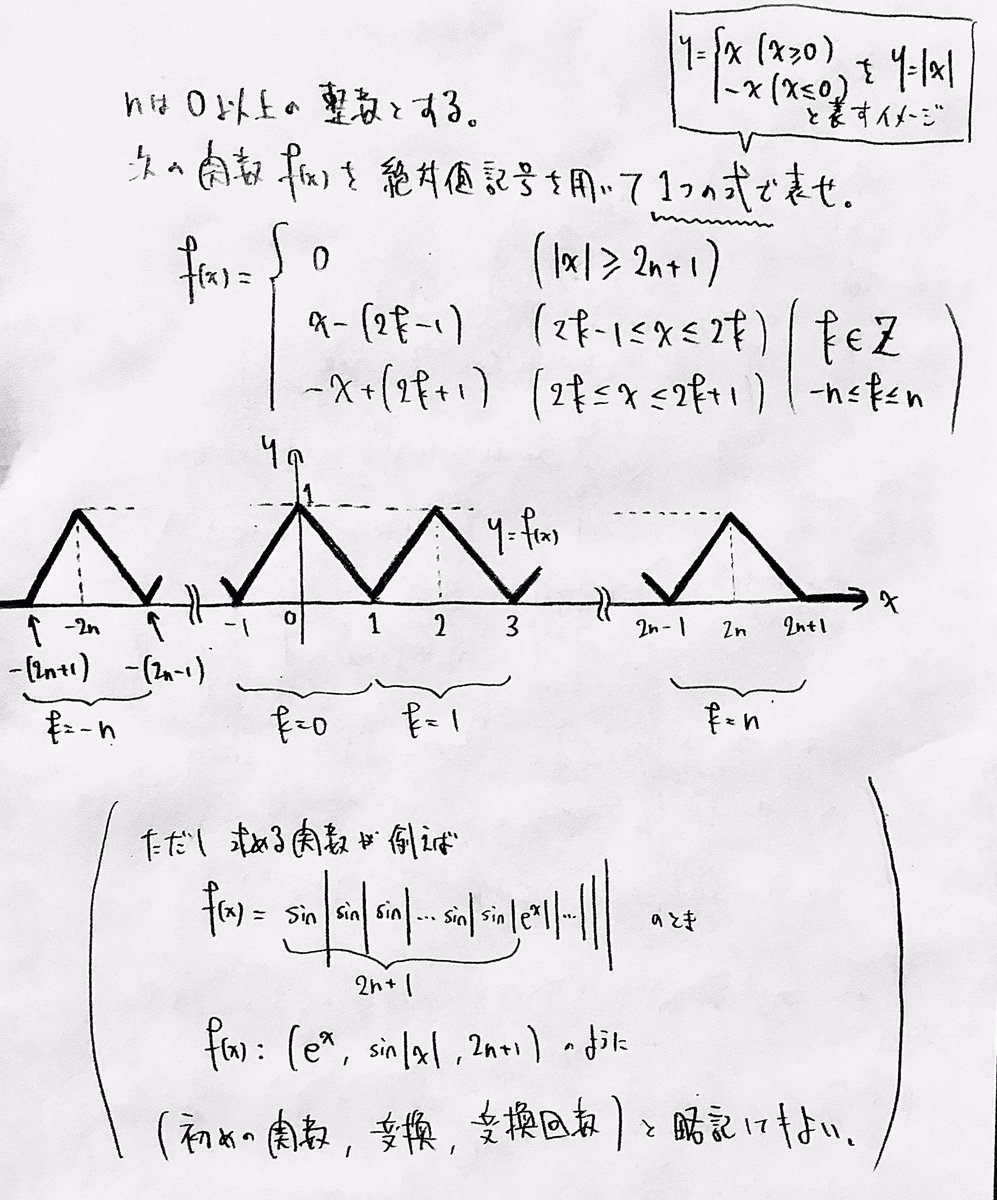 y={x (x≥0)
-x (x≤0) を y=|x|
と表すイメージ
nは0以上の整数とする。
次の関数f(x)を絶対値記号を用いて1つの式で表せ。
f(x)={0 (|x|≥2n+1)
x-(2k-1) (2k-1≤x≤2k) (k∈ℤ
-x+(2k+1) (2k≤x≤2k+1) -n≤k≤n)
y
1
y=f(x)
x
-2n -1 0 1 2 3 2n-1 2n 2n+1
-(2n+1) -(2n-1)
k=-n k=0 k=1 k=n
(ただし求める関数が例えば
f(x)= sin|sin|sin|…sin|sin|eˣ||…|||| のとき
2n+1
f(x): (eˣ, sin|x|, 2n+1) のように
(初めの関数, 変換, 変換回数)と略記してもよい。)